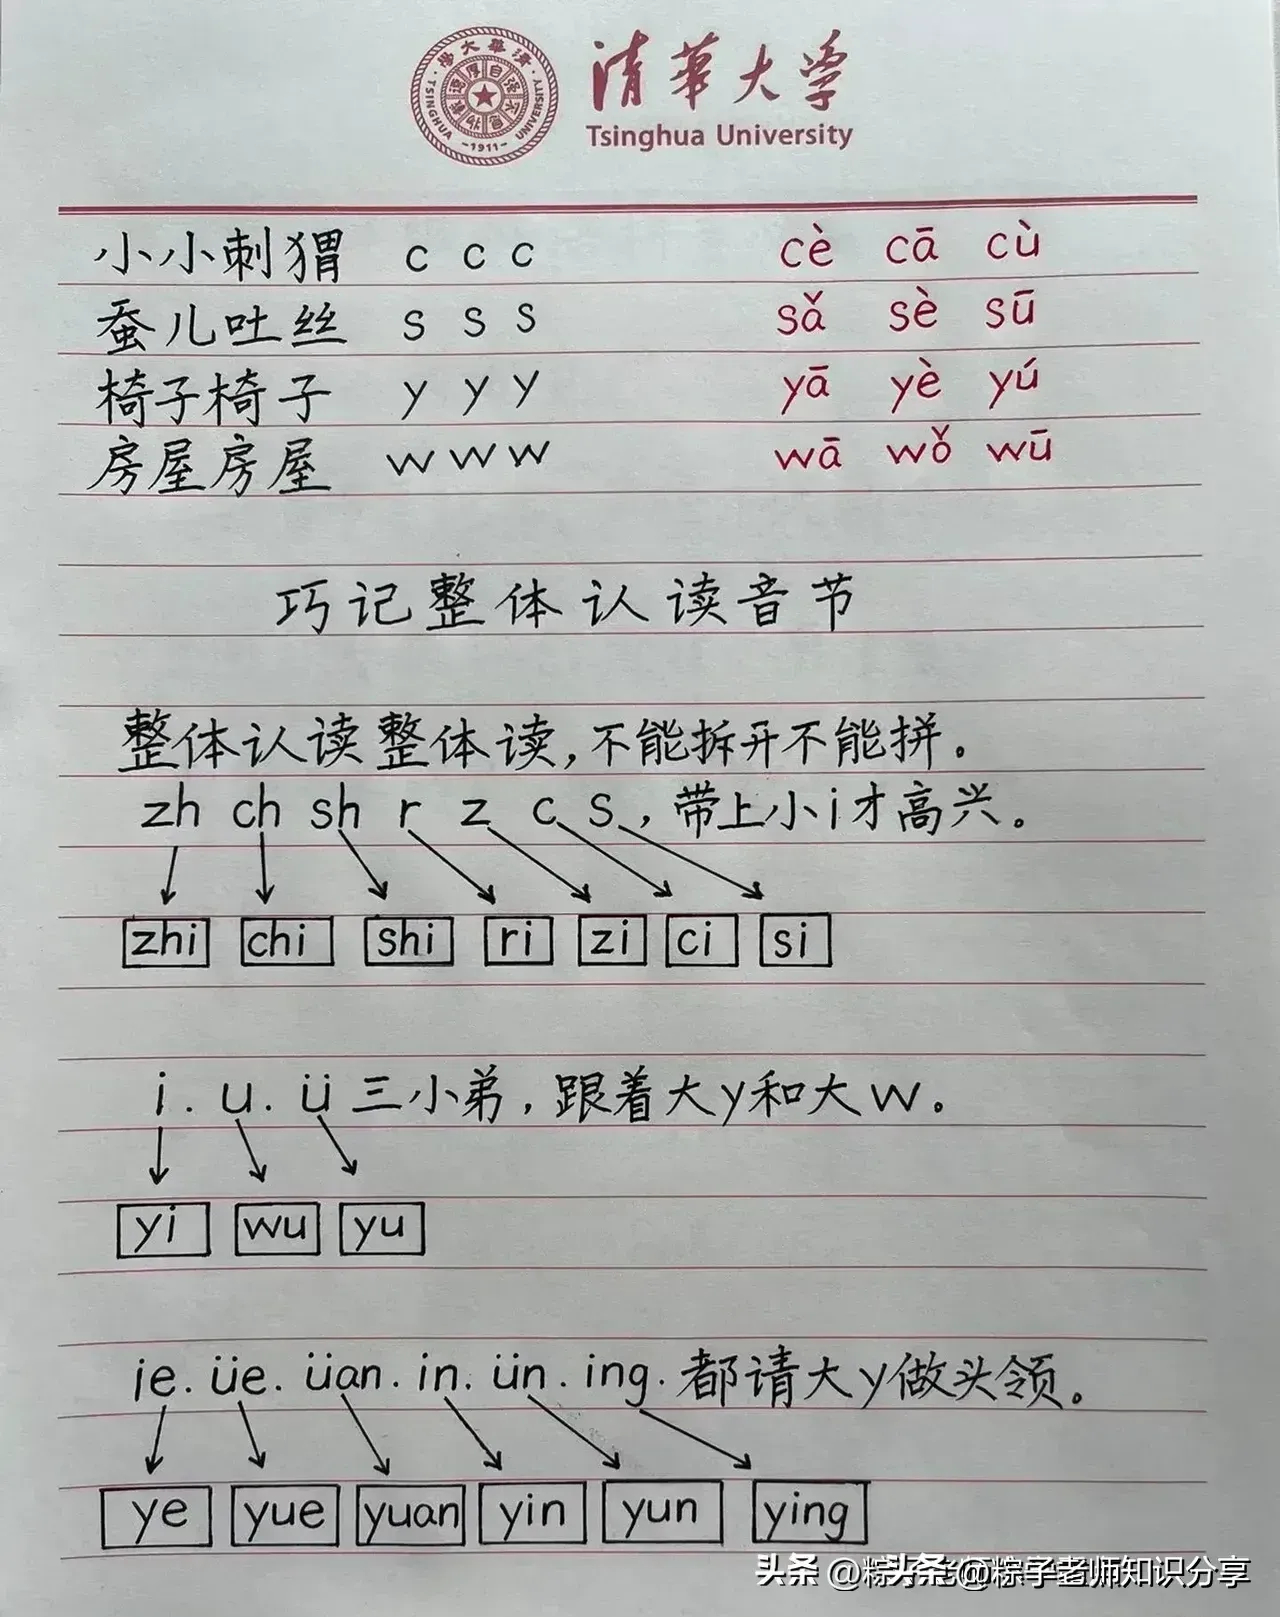 清華大学
Tsinghua University
TSINGHUA UNIVERSITY
-1911-
小小刺猬 c c c cè cā cù
蚕儿吐丝 s s s sǎ sè sū
椅子椅子 y y y yā yè yú
房屋房屋 w w w wā wǒ wū
巧记整体认读音节
整体认读整体读,不能拆开不能拼。
zh ch sh r z c s,带上小i才高兴。
zhi chi shi ri zi ci si
i.u.ü三小弟,跟着大y和大w。
yi wu yu
ie.üe.üan.in.ün.ing.都请大y做头领。
ye yue yuan yin yun ying
头条 @粽子老师知识分享